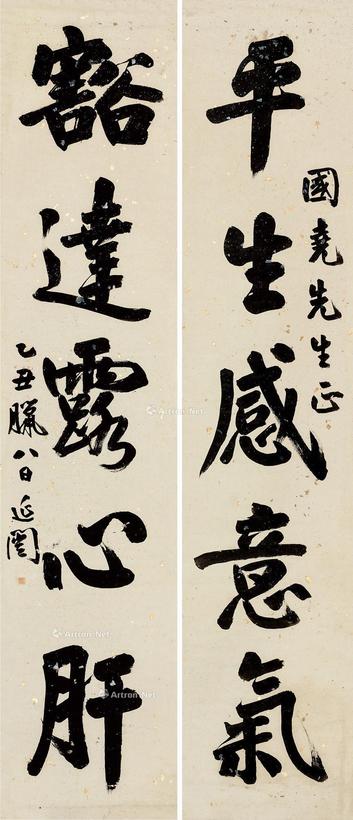 國堯先生正
平生感意氣
豁達露心肝
乙丑臘八日 延闓
Artron.Net
Artron.Net
Artron.Net